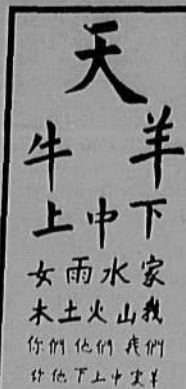 天
牛 羊
上中下
女雨水家
木土火山我
你們他們我們
你他下上中天羊